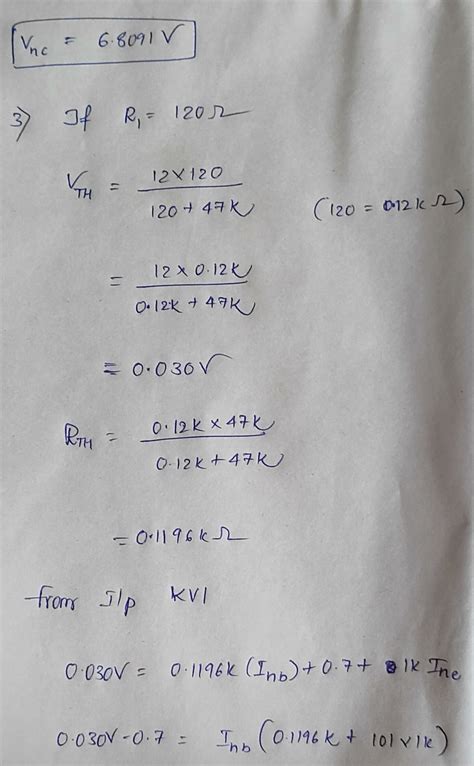 Vnc = 6.8091 V
3) If R1 = 120Ω
VTH = 12×120 / 120 + 47K (120 = 0.12k Ω)
= 12 × 0.12K / 0.12K + 47K
= 0.030V
RTH = 0.12K × 47K / 0.12K + 47K
= 0.1196kΩ
from I/p KVl
0.030V = 0.1196K (Inb) + 0.7 + 1K Ine
0.030V - 0.7 = Inb (0.1196K + 101×1K)